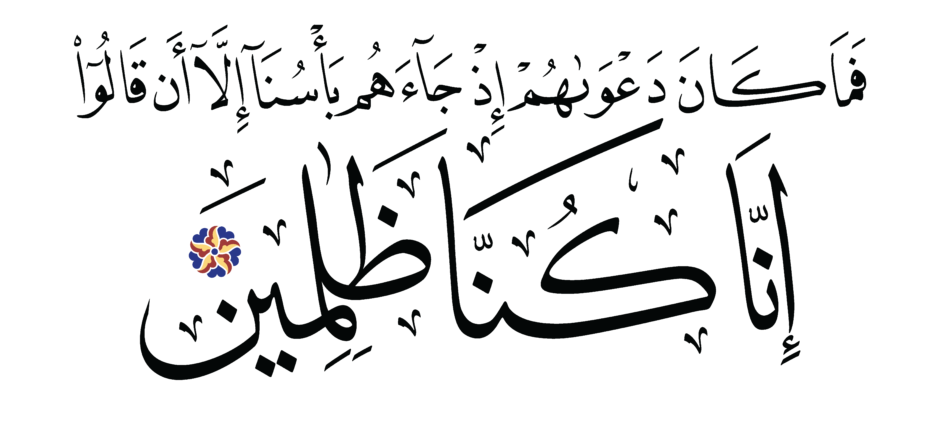 فَمَا كَانَ دَعْوَىٰهُمْ إِذْ جَآءَهُم بَأْسُنَآ إِلَّآ أَن قَالُوٓا۟
إِنَّا كُنَّا ظَٰلِمِينَ